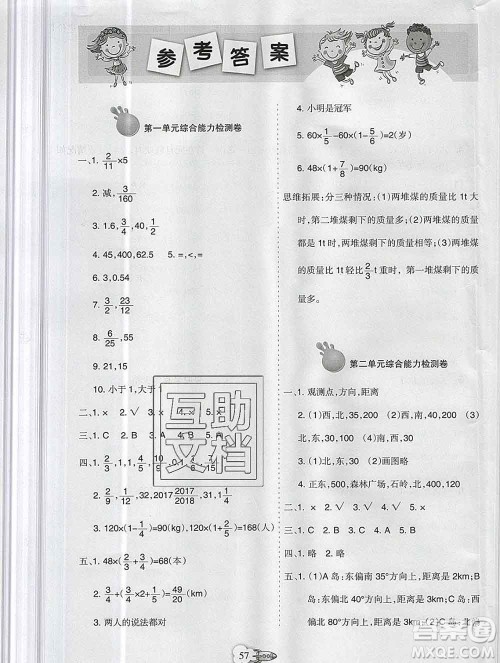 参考答案
第一单元综合能力检测卷
一、1. 2/11×5
2. 减, 3/160
3. 1.6, 3/4, 40, 1/2
4. 45,400,62.5 5. =,<,>
6. 3,0.54
7. 3/2, 23/23
8. 6/25
9. 21,15
10. 小于1,大于1
二、1. × 2. √ 3. 4. √ 5. ×
三、1. B 2. A 3. 4. B 5. A
2. 2/9 2/19 12 2017 2017/2018
3. 120×(1-1/4)=90(kg),120×(1+2/5)=168(人)
五、1. 48×(2/3+3/4)=68(本)
2. 3/4+(2/5+3/4)=49/20(km)
3. 两人的说法都对
4. 小明是冠军
5. 60×1/5-60×(1-5/6)=2(岁)
6. 48×(1+7/8)=90(kg)
思维拓展:分三种情况:(1)两堆煤的质量比1t
大时,第二堆煤剩下的质量多;(2)两堆煤的质量都
是1t时,两堆煤剩下的质量相等;(3)两堆煤的质
量比1t轻比2/3t重时,第一堆煤剩下的质量多。
第二单元综合能力检测卷
一、1. 观测点,方向,距离
2. (1)西,北,35,200 (2)西,南,40,400
3. (1)北,东,30,100 (2)画图略
4. 正东,500,森林广场,石岭,东,北,40,1200
二、1. × 2. × 3. √ 4. × 5. √
三、1. C 2. B 3. A 4. C 5. B
四、1. 略 2. 略
五、1. (1)A岛:东偏南35°方向上,距离是2km;B
岛:东偏北40°方向上,距离是3km;C岛:北偏
东80°方向上,距离是3km (2)A岛:北偏
57
互助
文档